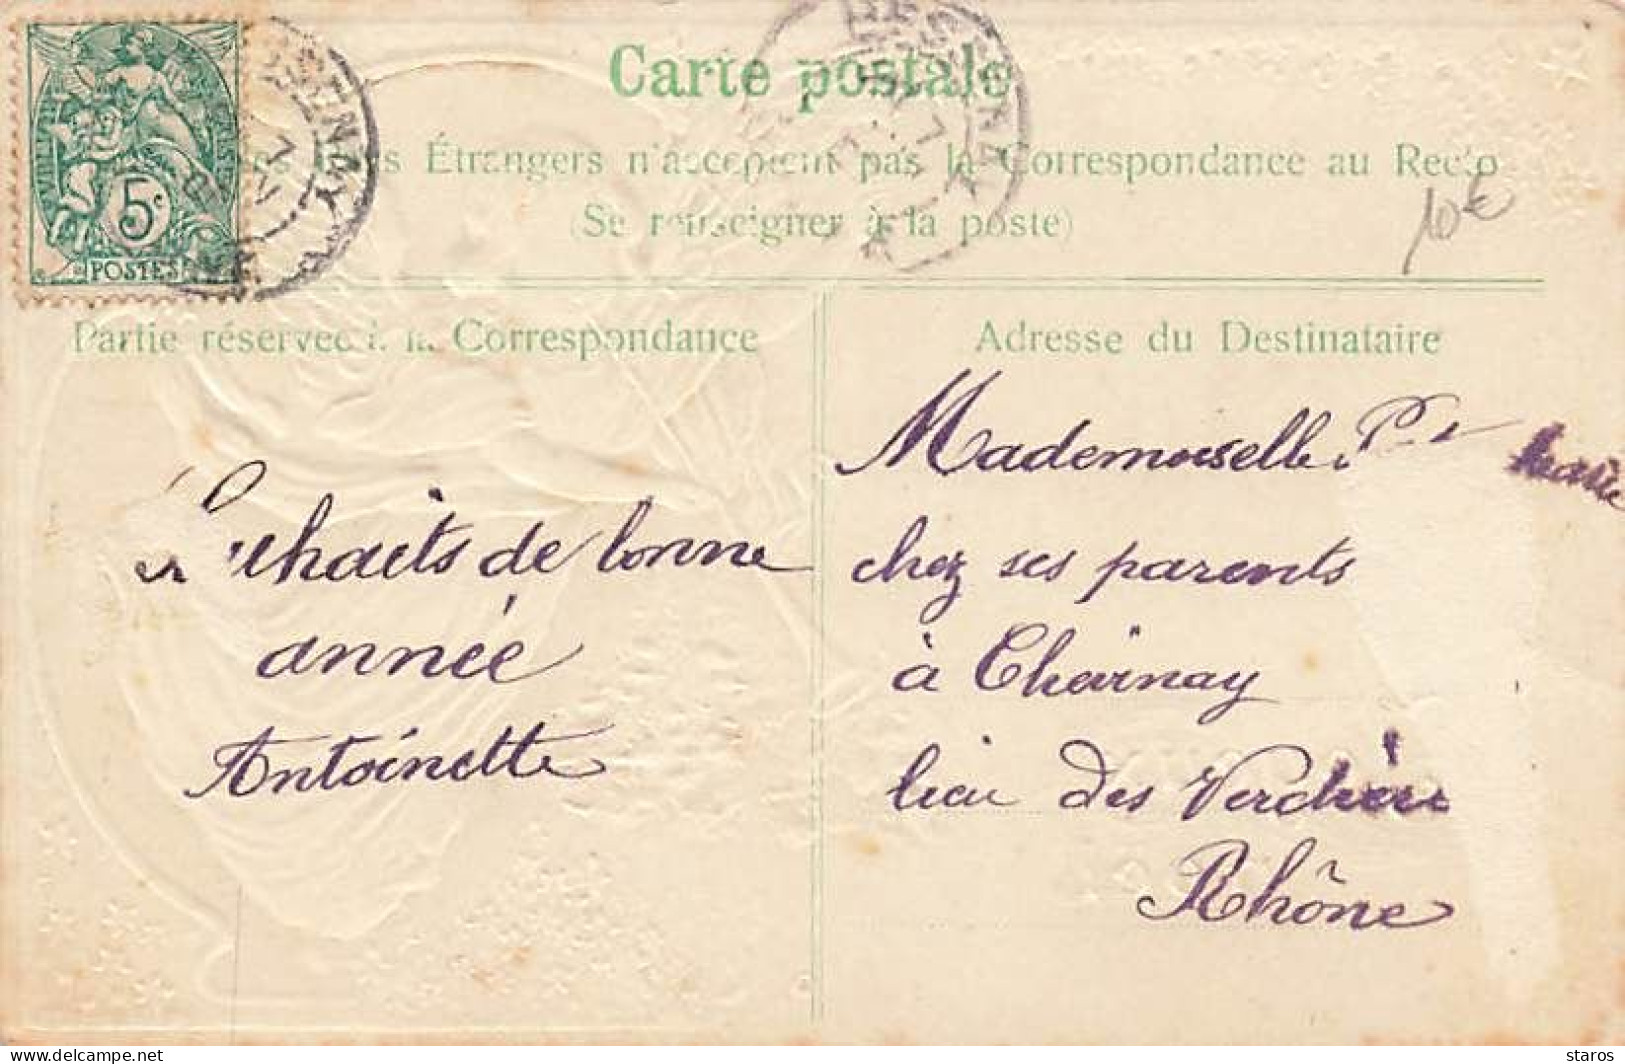 Carte postale
Étrangers n'acceptent pas la Correspondance au Recto
(Se renseigner à la poste)
10€
5c
POSTES
Partie réservée à la Correspondance
Adresse du Destinataire
Souhaits de bonne
année
Antoinette
Mademoiselle
Marie
chez ses parents
à Charnay
lieu des
Rhône
delcampe.net
staros